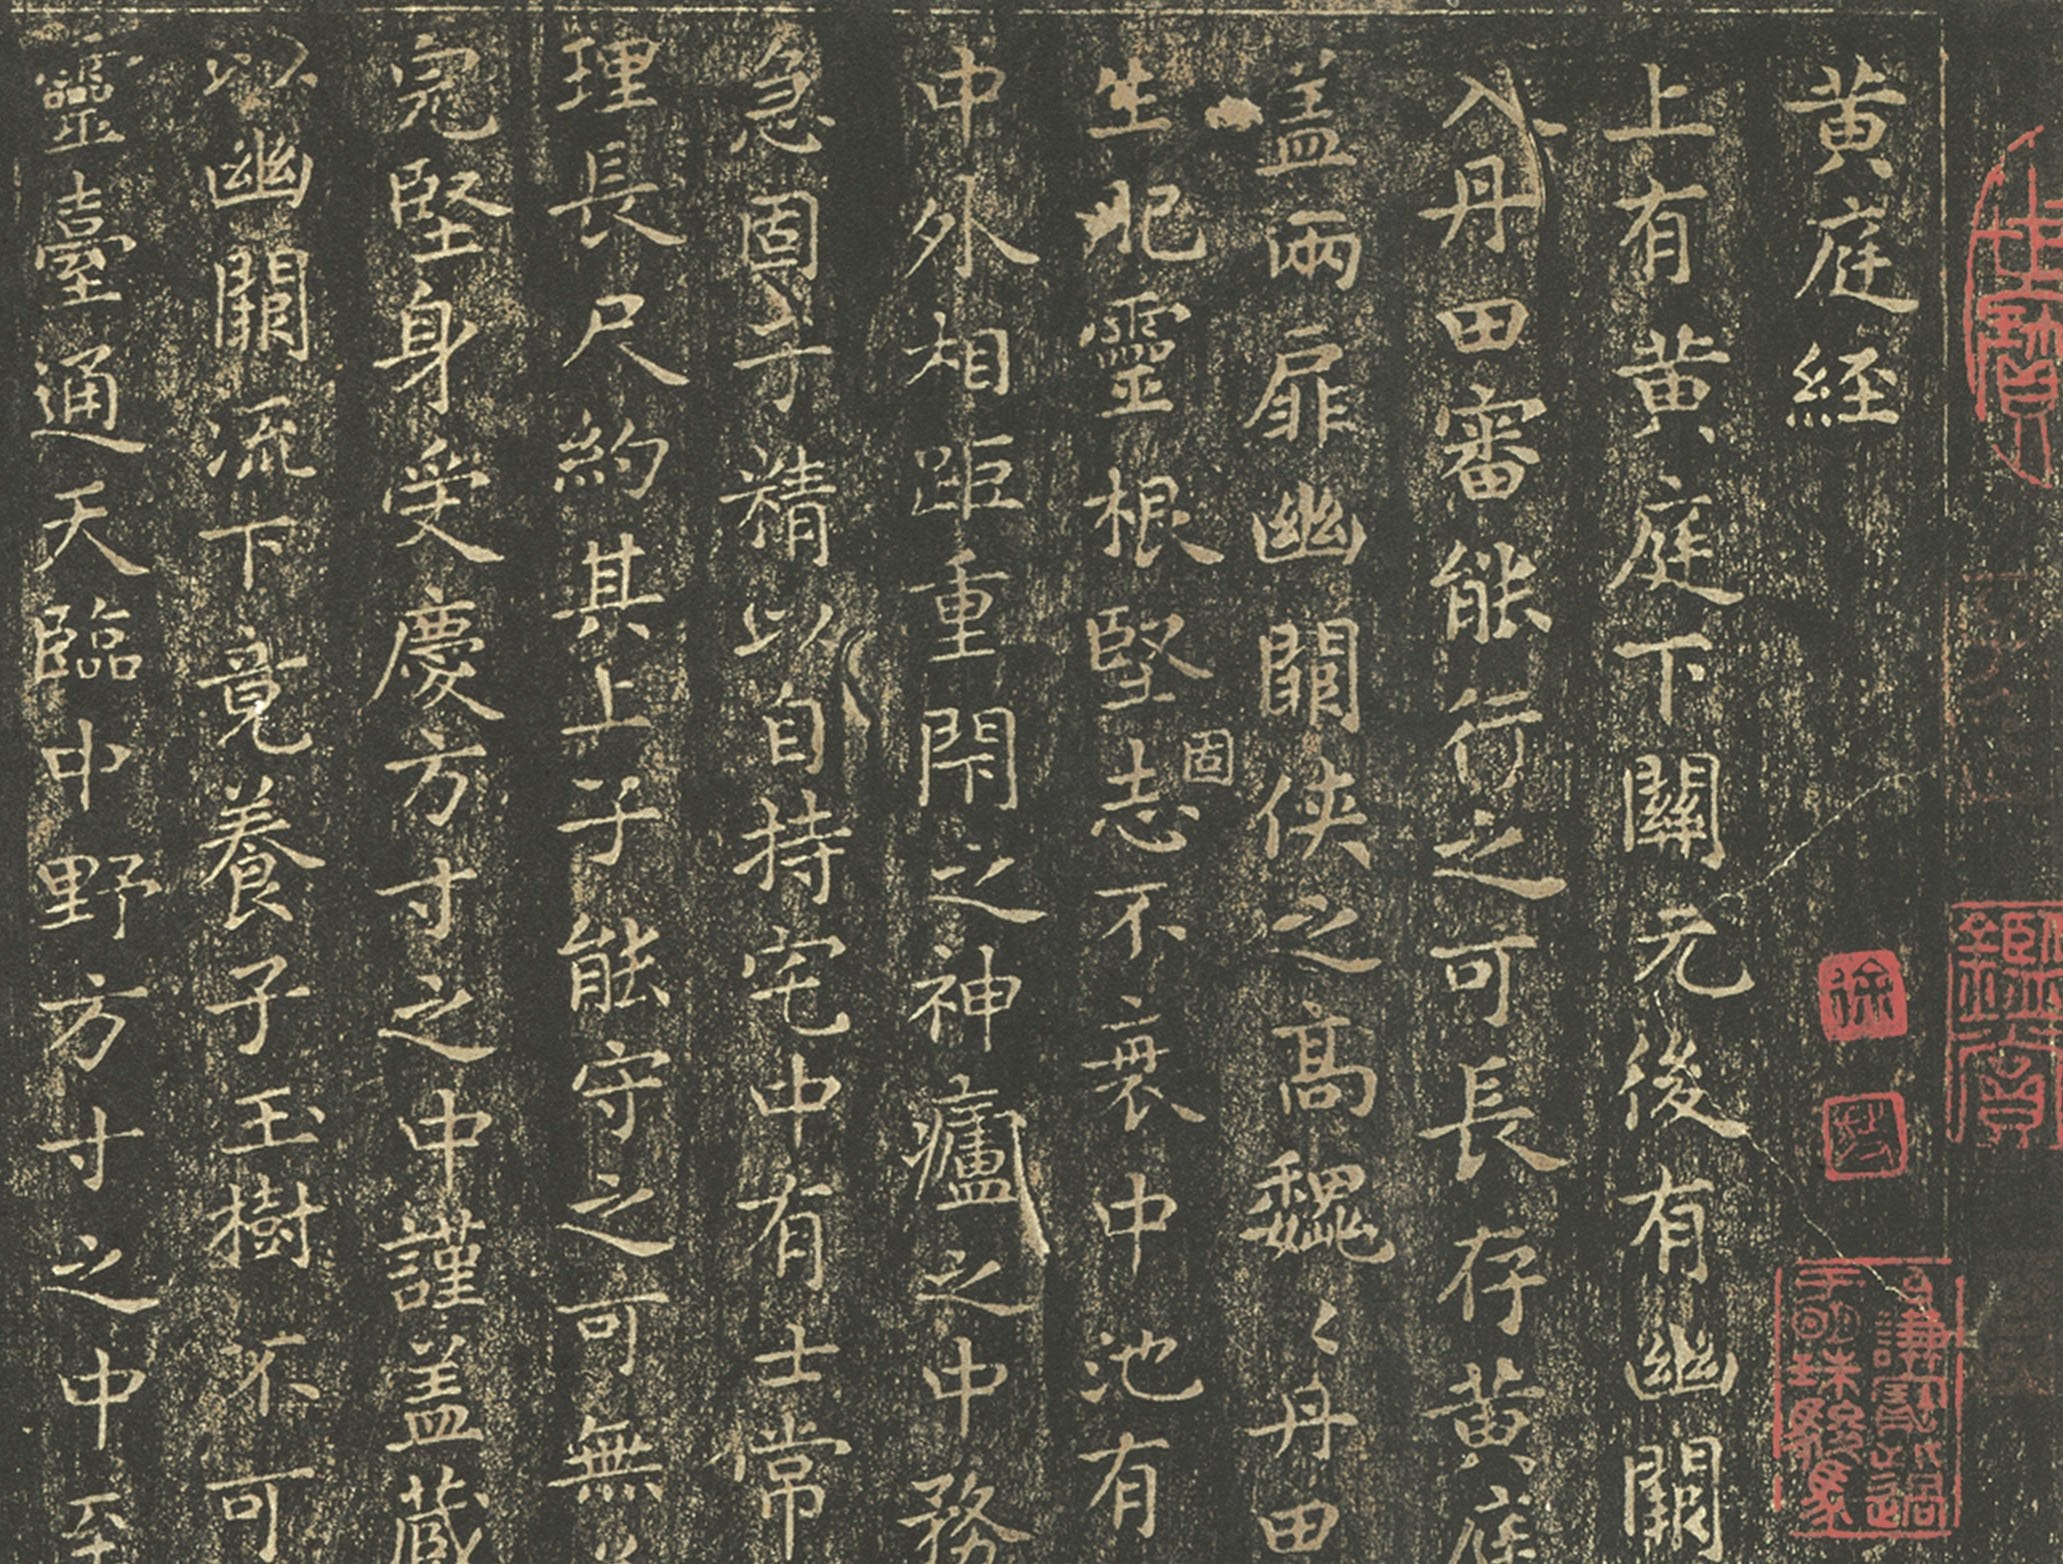 黄庭経
上有黄庭下關元後有幽闕
入丹田審能行之可長存黄庭
盖兩扉幽闗俠之高巍〻丹田
生肥靈根堅志不衰中池有
固
中外相距重閇之神廬之中務
急固子精以自持宅中有士常
理長尺約其上子能守之可無
寃堅身受慶方寸之中謹盖蔵
以幽闗流下竟養子玉樹不可
靈臺通天臨中野方寸之中至
徐
鑑賞